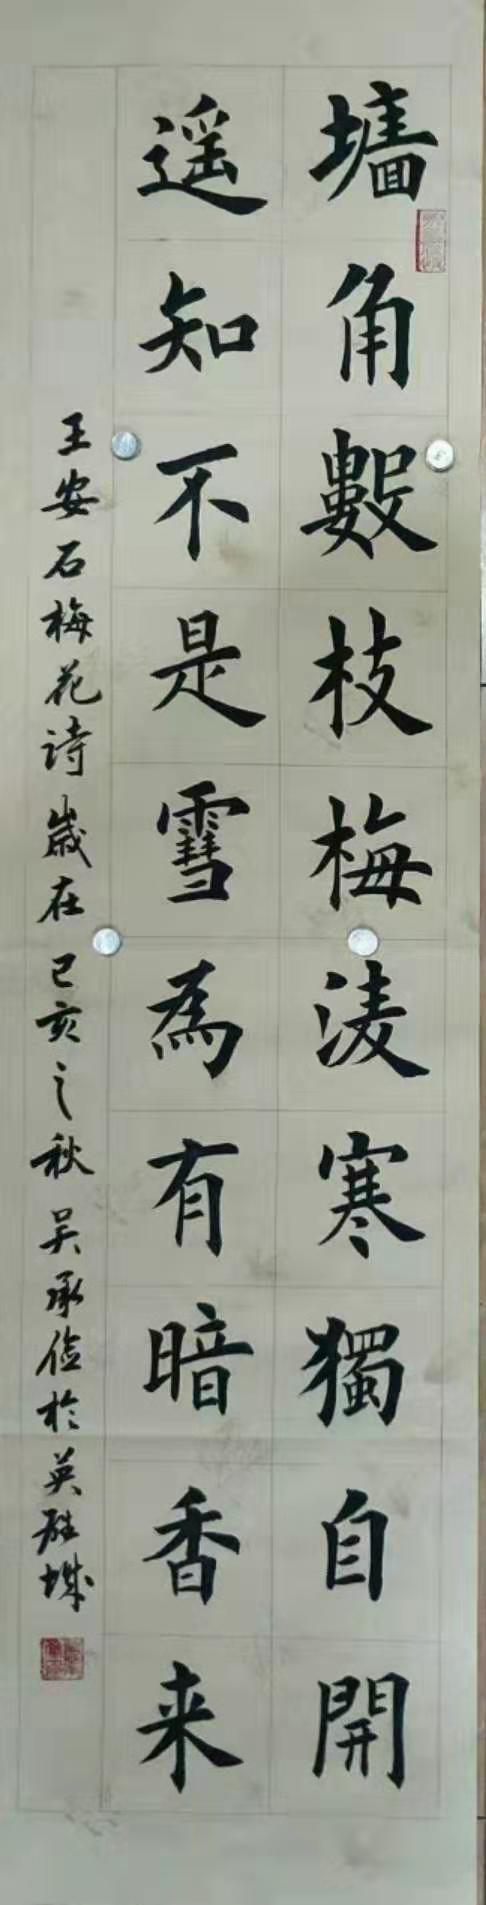 墙角數枝梅淩寒獨自開
遥知不是雪為有暗香来
王安石梅花诗岁在己亥之秋吴承俭於英胜城